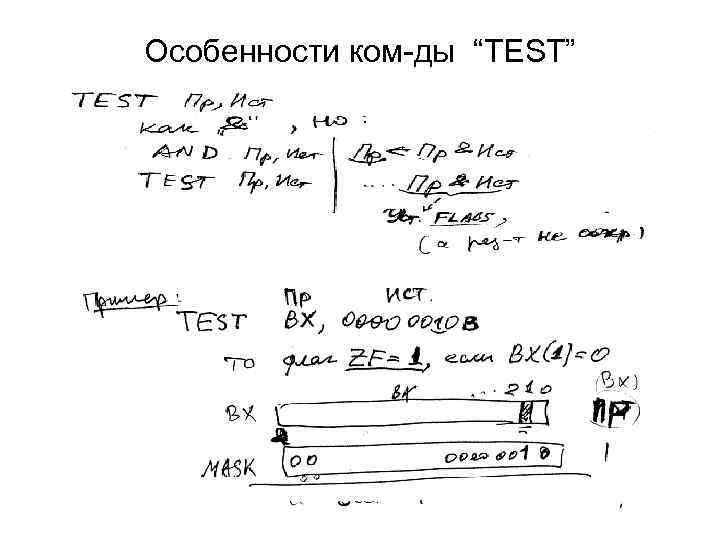 Особенности ком-ды “TEST”
TEST Пр, Ист
как „&“, но:
AND Пр, Ист | Пр ← Пр & Ист
TEST Пр, Ист | .... Пр & Ист
Уст. FLAGS,
(а рез-т не сохр)
Пример: Пр ИСТ.
TEST BX, 00000010B
ТО флаг ZF=1, если BX(1)=0
BX ...210 (BX)
BX ПР
MASK 00 00000010